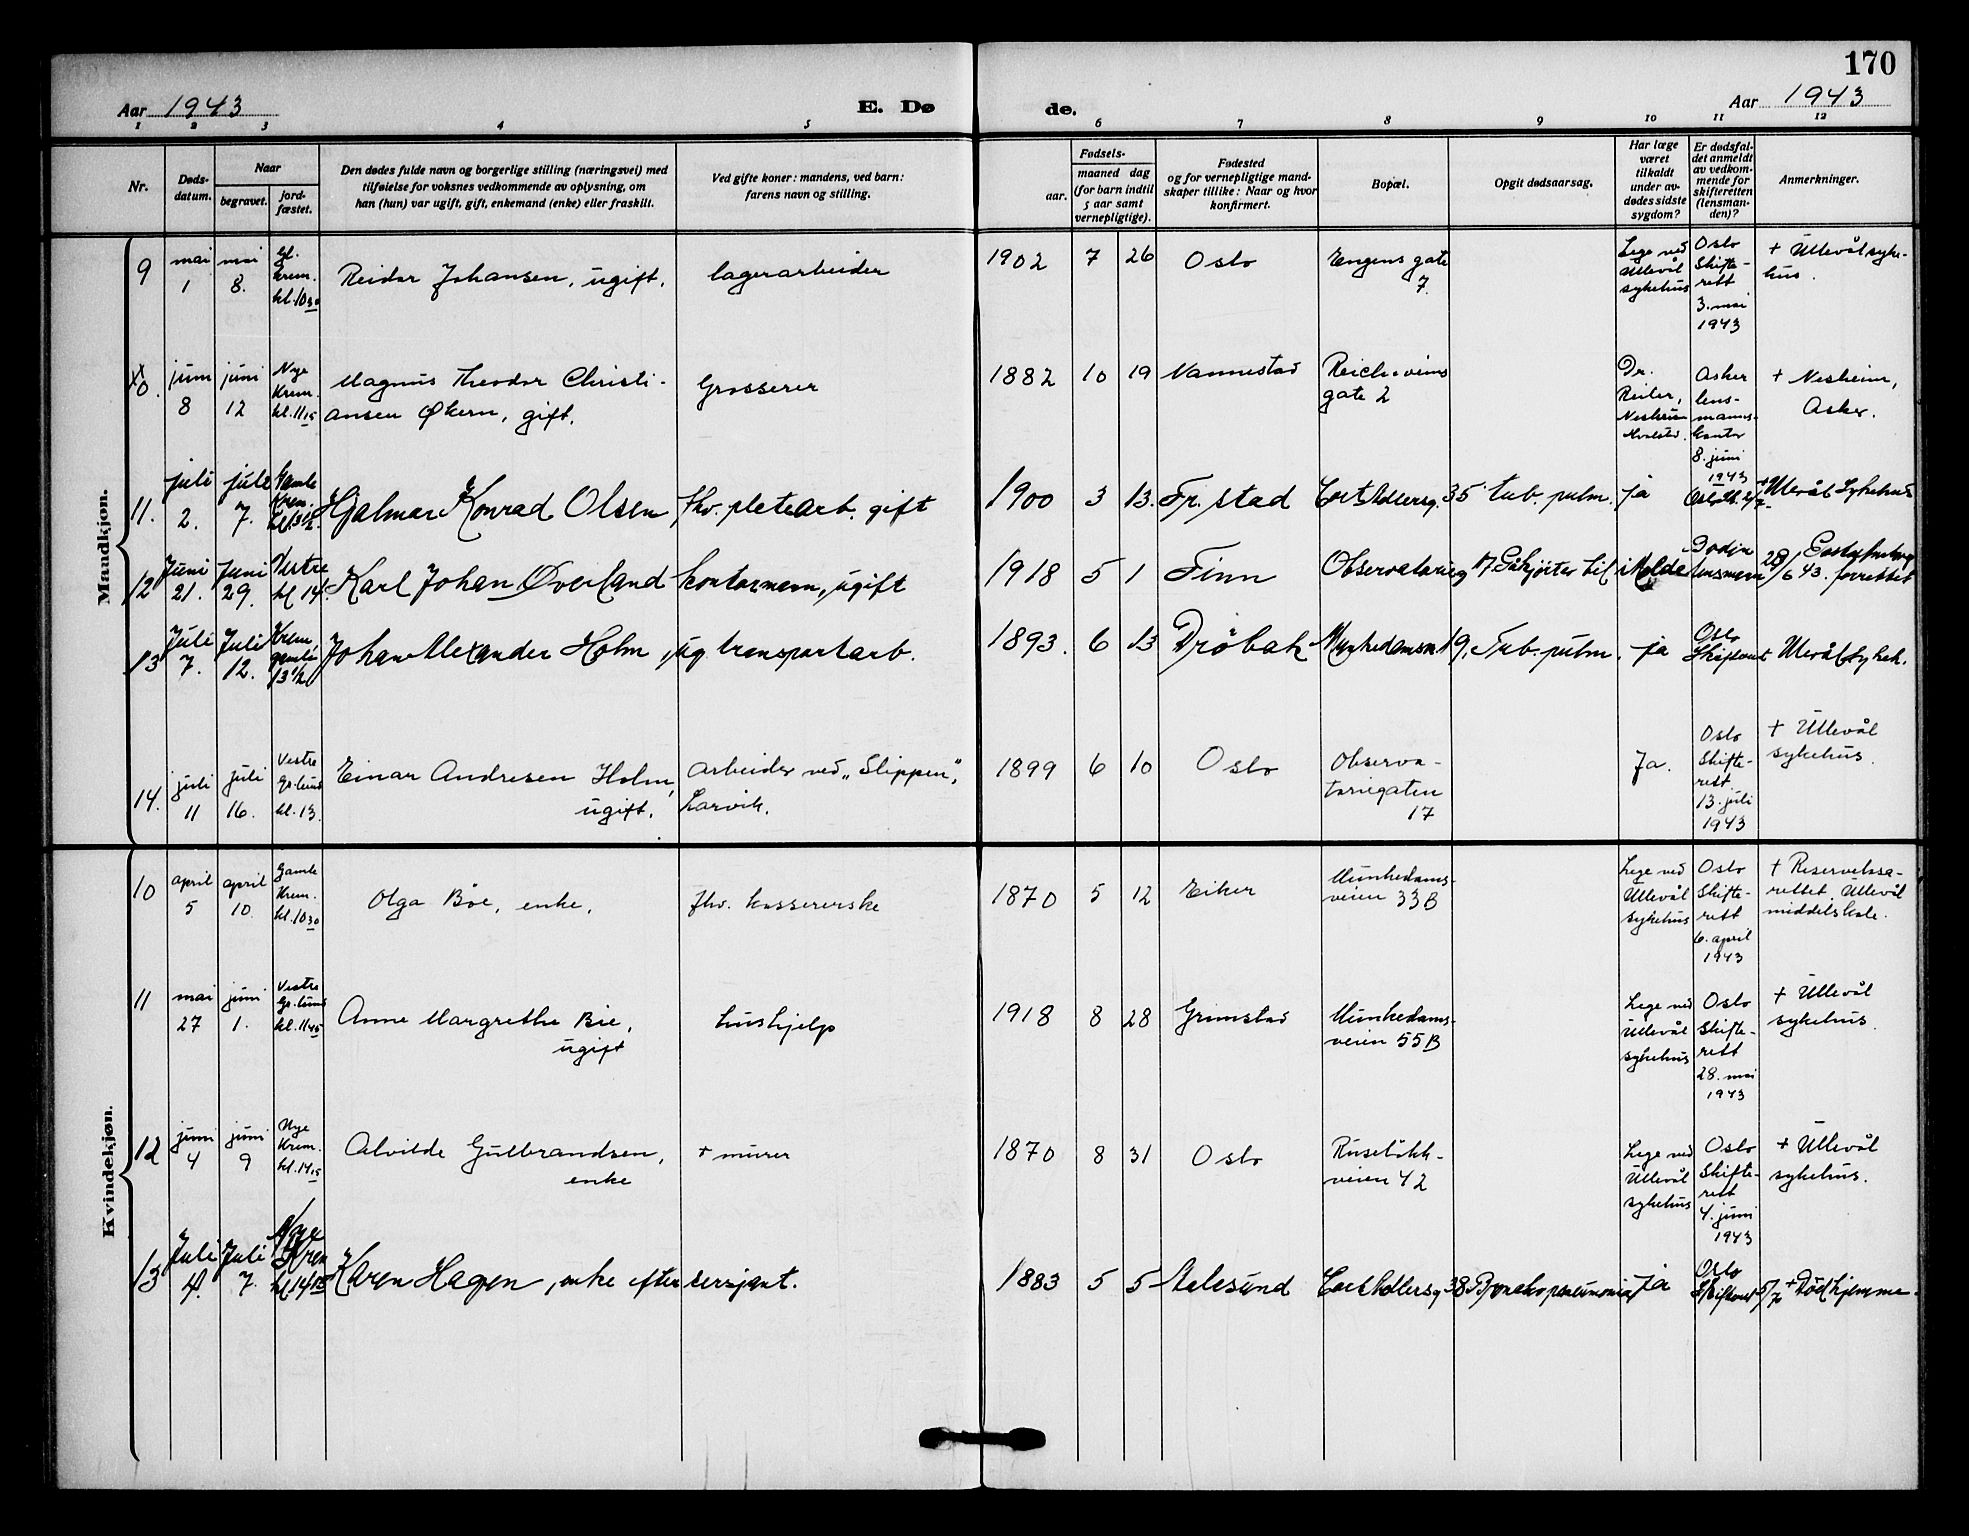 170
Aar 1943
E. Dø
de.
Aar 1943
1 2 3 4 5 6 7 8 9 10 11 12
Nr.
Døds-
datum.
Naar
begravet.
jord-
fæstet.
Den dødes fulde navn og borgerlige stilling (næringsvei) med
tilføielse for voksnes vedkommende av oplysning, om
han (hun) var ugift, gift, enkemand (enke) eller fraskilt.
Ved gifte koner: mandens, ved barn:
farens navn og stilling.
Fødsels-
aar.
maaned dag
(for barn indtil
5 aar samt
vernepligtige).
Fødested
og for vernepligtige mand-
skaper tillike: Naar og hvor
konfirmert.
Bopæl.
Opgit dødsaarsag.
Har læge
været
tilkaldt
under av-
dødes sidste
sygdom?
Er dødsfal-
det anmeldt
av vedkom-
mende for
skifteretten
(lensman-
den)?
Anmerkninger.
Mandkjøn.
9
mai
1
mai
8.
Gl.
Krem.
kl. 10 30
Reidar Johansen, ugift.
lagerarbeider
1902 7 26
Oslo
Engens gate
7.
Lege ved
Ullevål
sykehus
Oslo
Skifte-
rett
3. mai
1943
+ Ullevål syke-
hus.
10.
juni
8
juni
12
Nye
Krem.
kl. 11 15
Magnus Theodor Christi-
ansen Økern, gift.
Grosserer
1882 10 19
Nannestad
gate 2
Dr.
Asker
lens-
manns-
kontor
8. juni
1943
+ Nesheim,
Asker.
11.
juli
2.
juli
7.
Gamle
Krem.
Hjalmar Konrad Olsen
fhv. platearb. gift
1900 3 13.
Fr.stad
Cort Adlersg. 35
tub. pulm.
ja
+ Ullevål Sykehus
12
Juni
21.
Juni
29.
Vestre
kl 14.
Karl Johan Øverland
kontormann, ugift
1918 5 1
Finn
Observatorieg 17
Påkjørt av bil
i Molde
Bodin
lensmann
28/6 43.
forrettet
13
Juli
7.
Juli
12.
Krem
gamle
13 1/2
Johan Alexander Holm, ug.
transportarb.
1893. 6 13
Drøbak
Munkedamsv. 19.
Tub. pulm.
ja
Oslo
Skifterett
Ullevål sykeh.
14.
juli
11
juli
16.
Vestre
Gr. lund
kl. 13.
Einar Andresen Holm,
ugift.
Arbeider ved „Slippen”,
Larvik.
1899 6 10
Oslo
Observa-
toriegaten
17
Ja.
Oslo
Skifte-
rett
13. juli
1943
+ Ullevål
sykehus.
Kvindekjøn.
10
april
5
april
10.
Gamle
Krem.
kl. 10 30
Olga Bøe, enke,
fhv. kassererske
1870 5 12
Eiker
Munkedams-
veien 33 B
Lege ved
Ullevål
sykehus
Oslo
Skifte-
rett
6. april
1943
+ Reservelasa-
rettet, Ullevål
middelskole.
11
mai
27
juni
1.
Vestre
Gr. lund
kl. 11 45
Anne Margrethe Bie,
ugift
hushjelp
1918 8 28
Grimstad
Munkedams-
veien 55 B
Lege ved
Ullevål
sykehus
Oslo
Skifte-
rett
28. mai
1943
+ Ullevål
sykehus.
12
juni
4
juni
9
Nye
Krem.
kl. 14 15
Alvilde Gulbrandsen,
enke
+ murer
1870 8 31
Oslo
Ruseløkk-
veien 42
Lege ved
Ullevål
sykehus
Oslo
Skifte-
rett
4. juni
1943
+ Ullevål
sykehus.
13
Juli
4.
Juli
7.
Nye
Krem
kl 14 15
Karen Hagen, enke efter
sersjant.
1883 5 5
Aalesund
Cort Adlersg 38
Bronchopneumonia
ja
Oslo
Skifterett
5/7
+ Død hjemme.